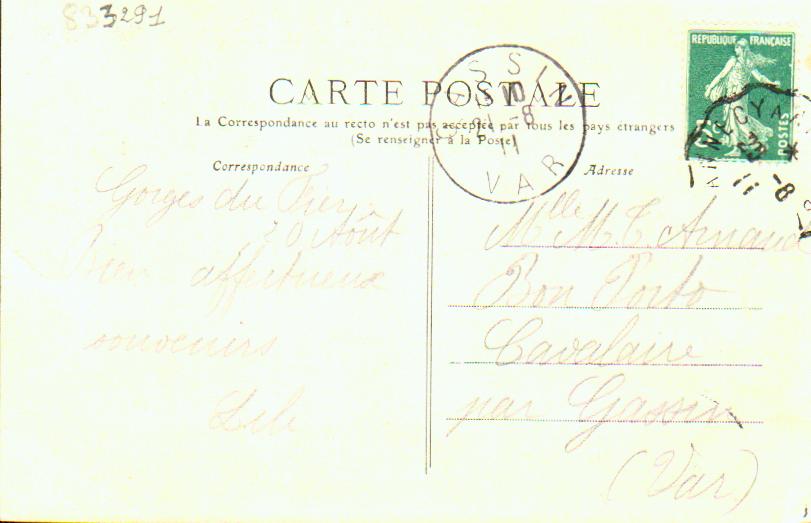 833291
RÉPUBLIQUE FRANÇAISE
POSTES
CARTE POSTALE
La Correspondance au recto n'est pas acceptée par tous les pays étrangers
(Se renseigner à la Poste)
GASSIN
10
21-8
11
VAR
ANNECY
20-8
11
Correspondance
Gorges du Fier
20 Août
Bien affectueux
souvenirs
Lili
Adresse
Mlle M. T. Arnaud
Bon Porto
Cavalaire
par Gassin
(Var)